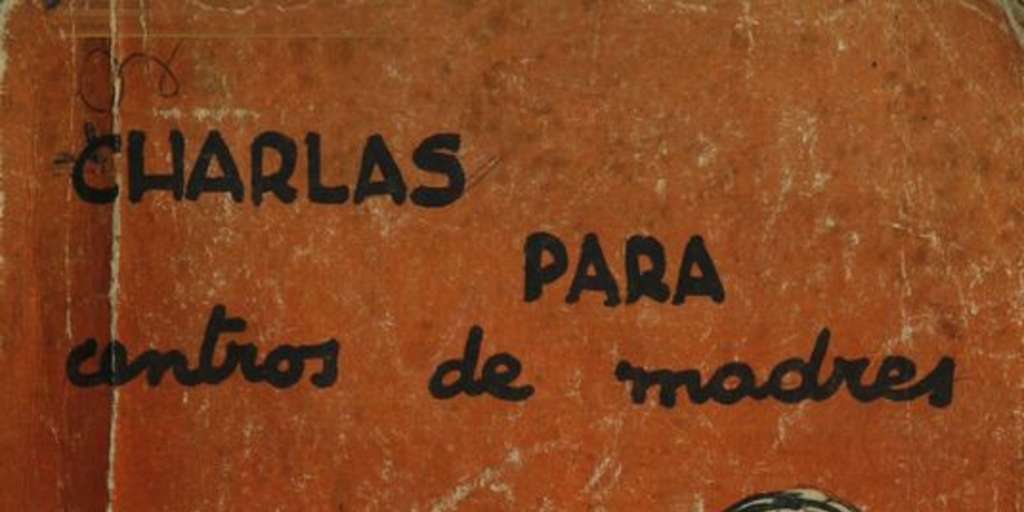 CHARLAS
PARA
centros de madres